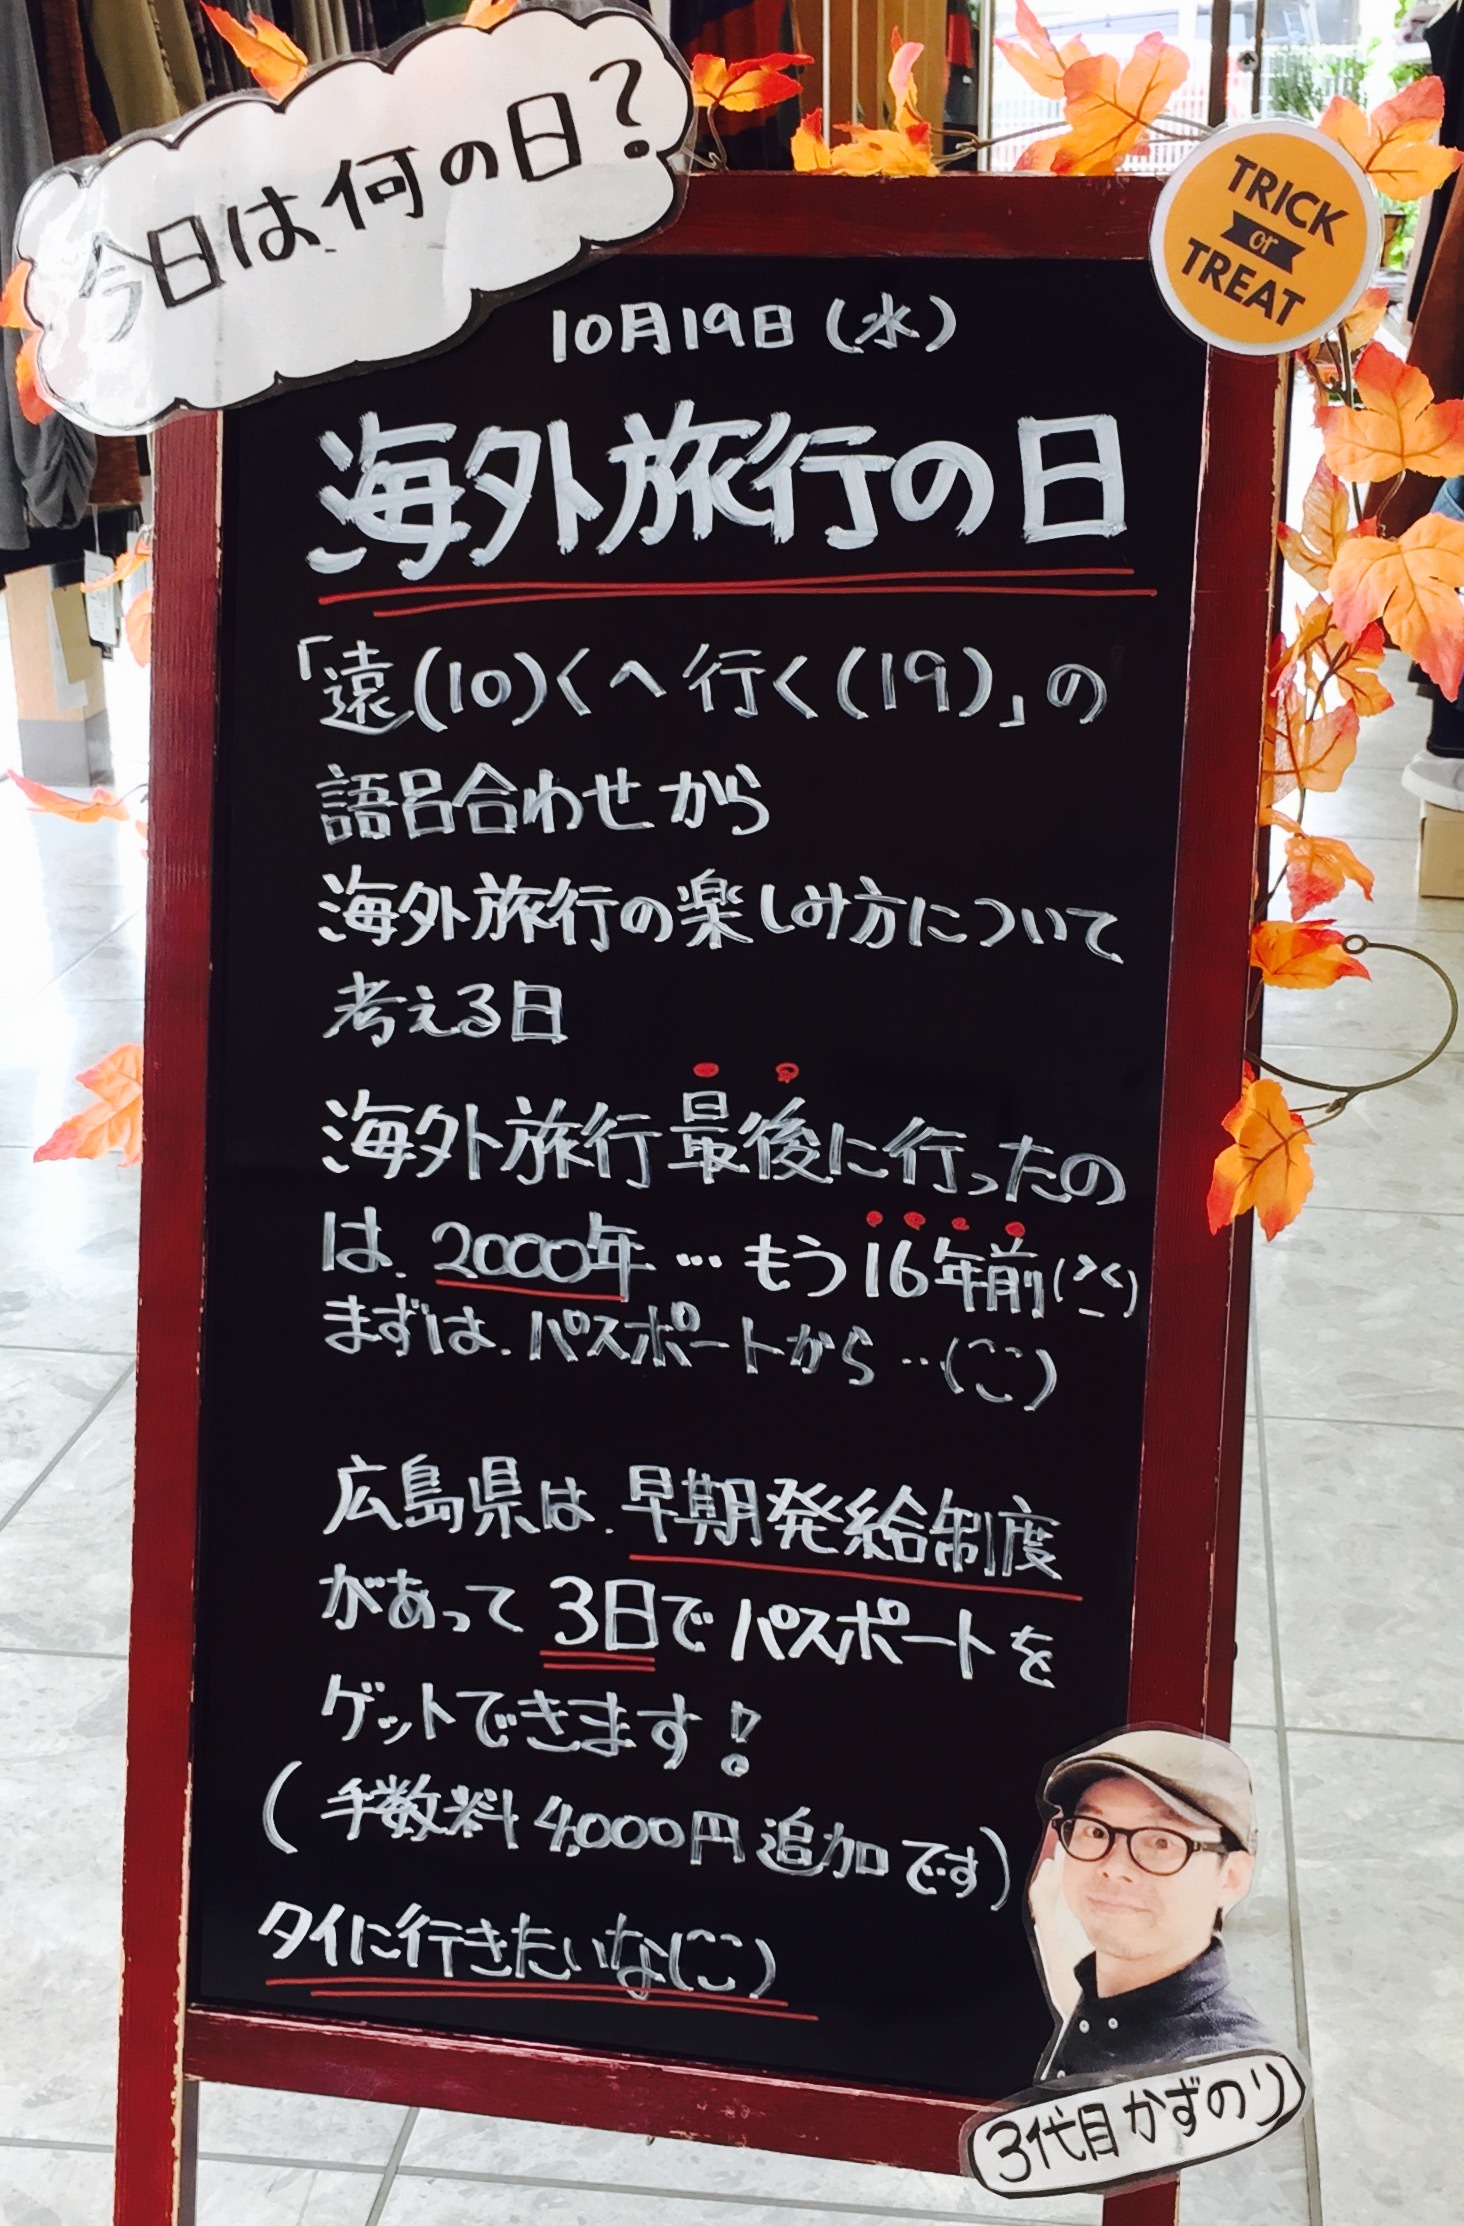 今日は何の日?
TRICK
or
TREAT
10月19日(水)
海外旅行の日
「遠(10)くへ行く(19)」の
語呂合わせから
海外旅行の楽しみ方について
考える日
海外旅行最後に行ったの
は、2000年…もう16年前(>_<)
まずは、パスポートから…(^^)
広島県は、早期発給制度
があって3日でパスポートを
ゲットできます!
(手数料4,000円追加です)
タイに行きたいな(^^)
3代目かずのり